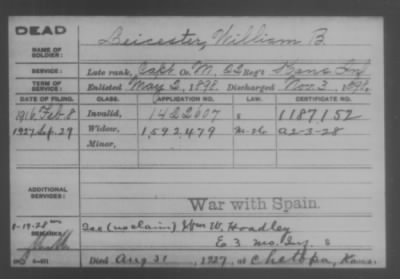 DEAD
NAME OF SOLDIER: Leicester, William B
SERVICE: Late rank, Capt Co. M, 22 Reg't Kans Inf
TERM OF SERVICE: Enlisted May 2, 1898. Discharged Nov. 3, 1898.
DATE OF FILING. CLASS. APPLICATION NO. LAW. CERTIFICATE NO.
1916 Feb. 8 Invalid, 1422607 1187152
1927 Sep. 29 Widow, 1,592,479 a2-3-28
Minor,
ADDITIONAL SERVICES:
War with Spain.
REMARKS: See (no claim) Wm W. Hoadley
E 3 Mo. Inf.
Died Aug 31, 1927, at Chetopa, Kans.